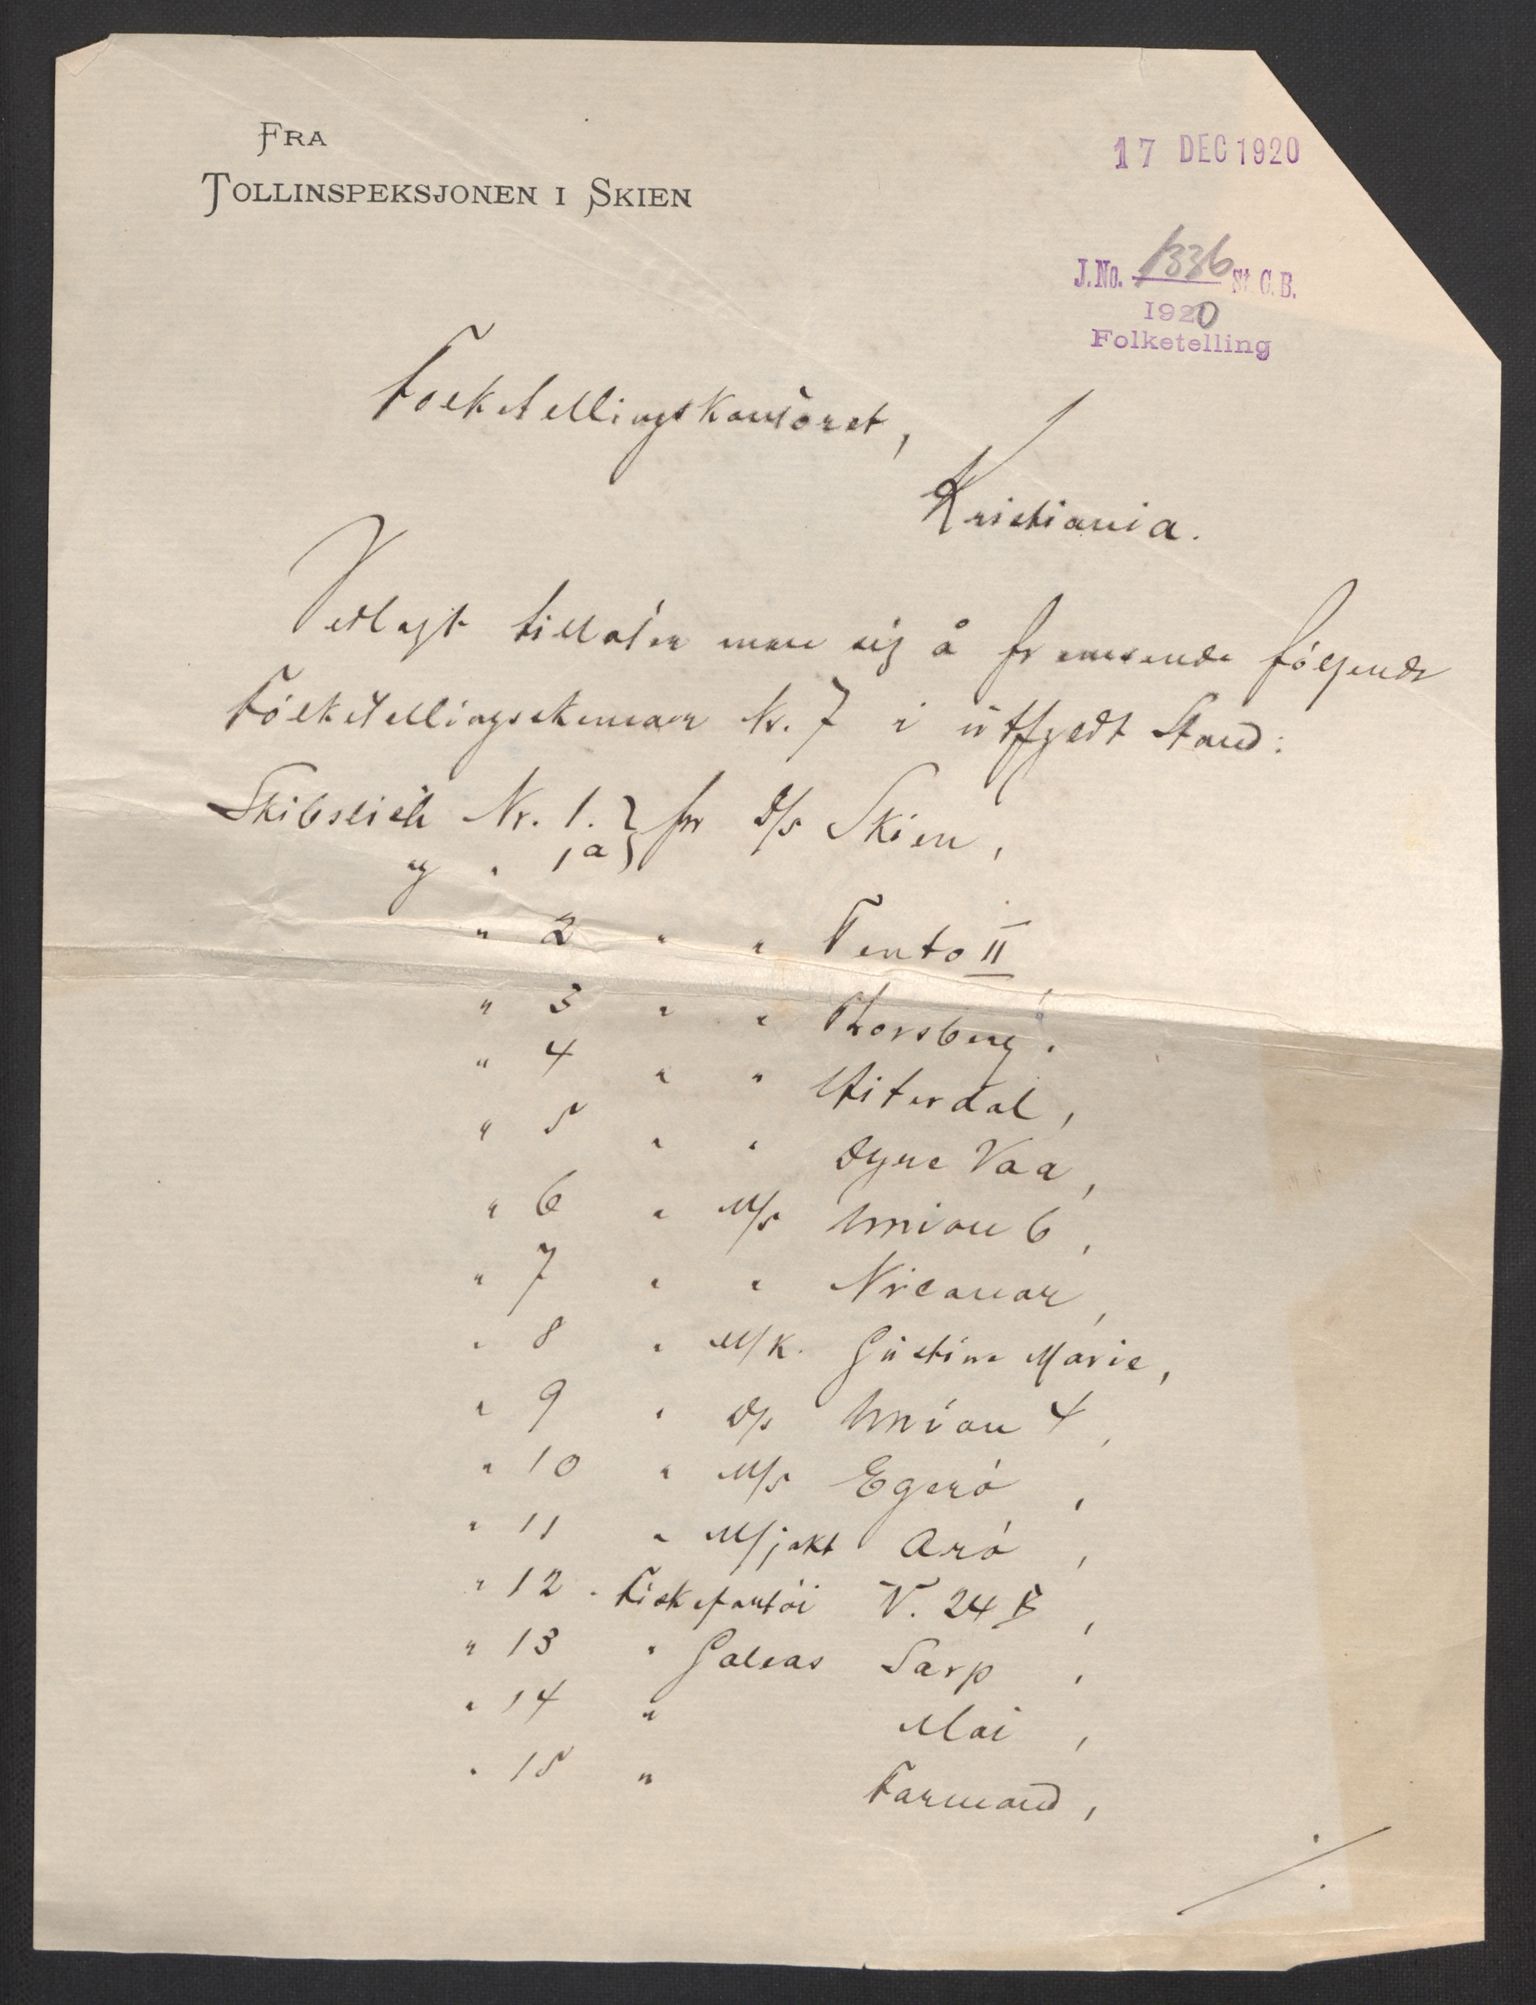 FRA
TOLLINSPEKSJONEN I SKIEN
17 DEC 1920
J.No. 1336 St. C. B.
1920
Folketelling
Folketellingskontoret,
Kristiania.
Vedlagt tillater man sig å fremsende følgende
Folketellingsskemaer Nr. 7 i utfyldt Stand:
Skibsliste Nr. 1. } for D/s Skien,
og " 1a }
" 2 " " Fento II,
" 3 " " Thorsberg,
" 4 " " Hiterdal,
" 5 " " Dyre Vaa,
" 6 " M/s Union 6,
" 7 " "
" 8 " M/k. Gustine Marie,
" 9 " D/s Union 4,
" 10 " M/s Egerö,
" 11 " M/jakt Arö,
" 12 " Fiskefartöi V. 24 B,
" 13 " Galeas Sarp,
" 14 " Mai,
" 15 " Farmand,
./.